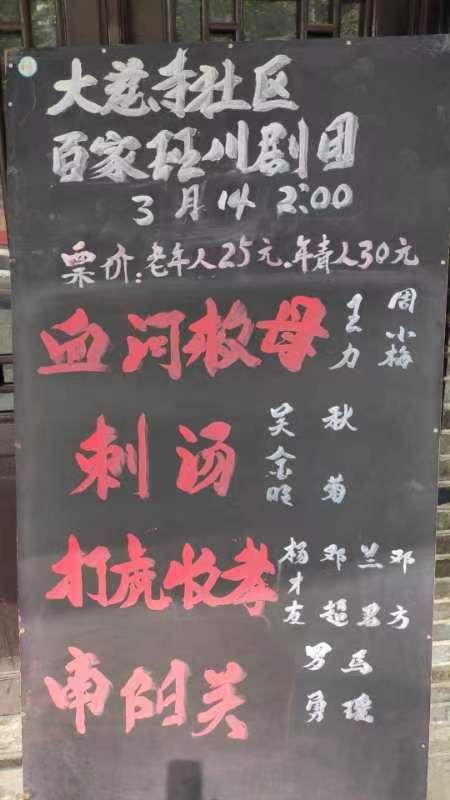 大慈寺社区
百家班川剧团
3月14 2:00
票价:老年人25元.年青人30元
血河救母 王力 周小梅
刺汤 吴金旺 秋菊
打虎收孝 杨才友 邓超 兰君 邓方
南阳关 男勇 马瑗